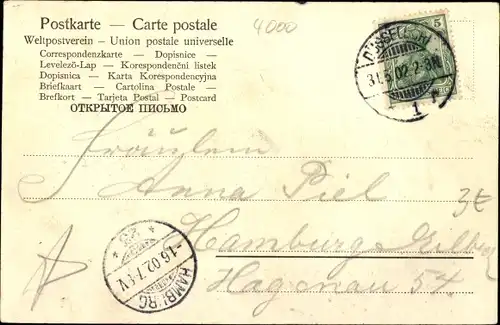 Postkarte — Carte postale
4000
Weltpostverein – Union postale universelle
Correspondenzkarte — Dopisnice —
Levelező-Lap — Korespondenční listek
Dopisnica — Karta Korespondencyjna
Briefkaart — Cartolina Postale —
Brefkort — Tarjeta Postal — Postcard
ОТКРЫТОЕ ПИСЬМО
5
31.5.02.2-3N.
1
Fräulein
Anna Piel
Hamburg-Eilbek
Hagenau 54
-1.6.02.7-8V.
HAMBURG